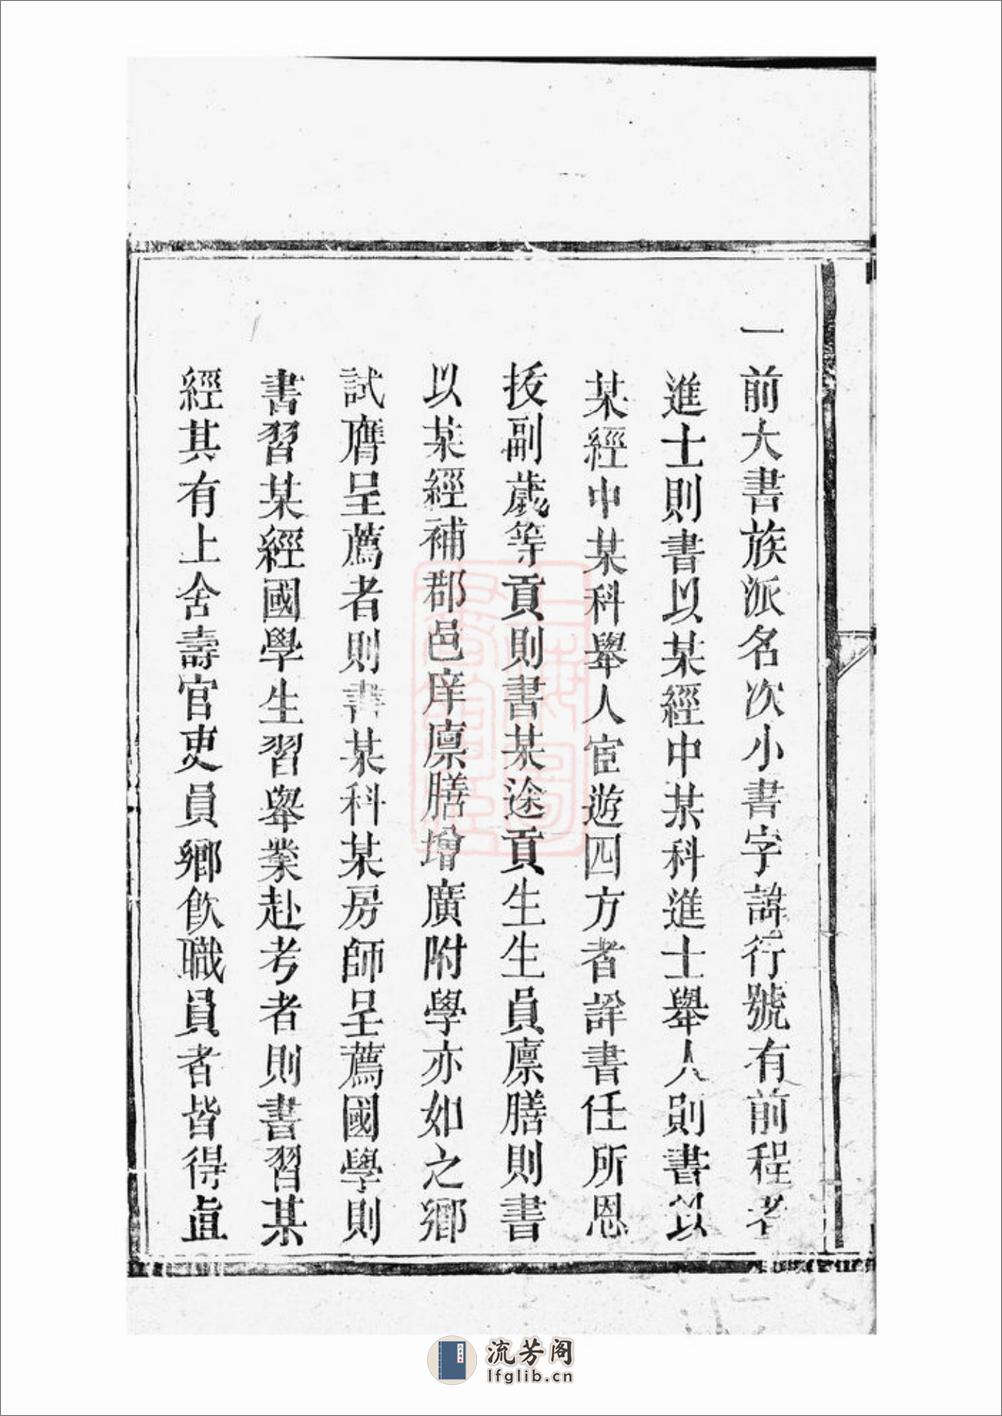 一前大書族派名次小書字諱行號有前程者
進士則書以某經中某科進士舉人則書以
某經中某科舉人宦遊四方者詳書任所恩
拔副歲等貢則書某途貢生生員廪膳則書
以某經補郡邑庠廪膳增廣附學亦如之鄉
試膺呈薦者則書某科某房師呈薦國學則
書習某經國學生習舉業赴考者則書習某
經其有上舍壽官吏員鄉飲職員者皆得直
流芳阁
lfglib.cn